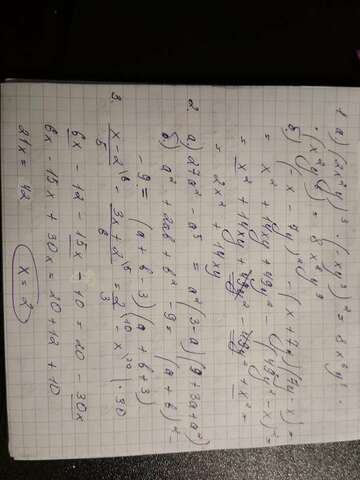 1. а) (2x²y²)³ · (-xy³)² = 8x⁶y⁶ ·
· (x²y⁶) = 8x⁸y⁹
б) (-x - 7y)² - (x + 7y)(7y - x) =
= x² + 14xy + 49y² - (49y² - x²) =
= x² + 14xy + 49y² - 49y² + x² =
= 2x² + 14xy
2. а) 27a² - a⁵ = a²(3-a)(9 + 3a + a²)
б) a² + 2ab + b² - 9 = (a + b)² -
- 9 = (a + b - 3)(a + b + 3)
3. x - 2 \6 / 5 - 3x + 2 \5 / 6 = 2 \10 / 3 - x \30 | · 30
6x - 12 - 15x - 10 = 20 - 30x
6x - 15x + 30x = 20 + 12 + 10
21x = 42
x = 2